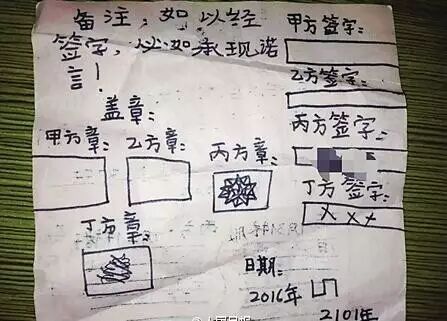 备注：如以经
签字，必如承现诺
言！
甲方签字：
乙方签字：
丙方签字：
丁方签字：
X X X
盖章：
甲方章：
乙方章：
丙方章：
丁方章：
日期：
2016年
2101年